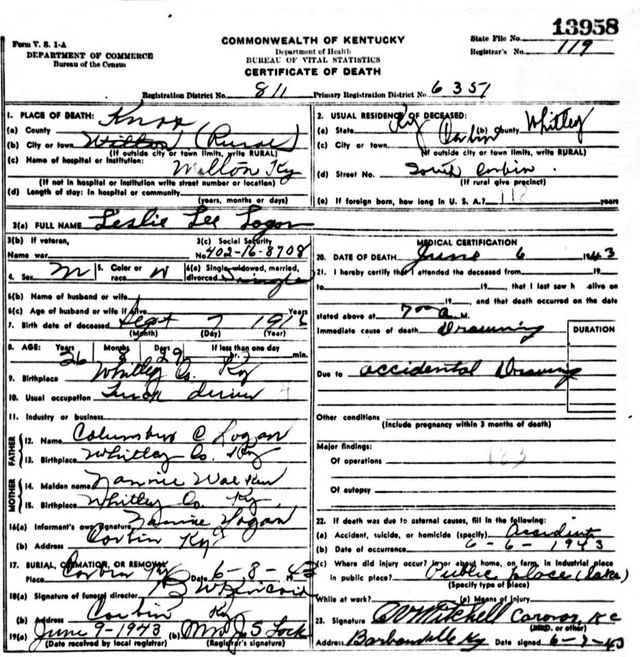 13958
Form V. S. 1-A
COMMONWEALTH OF KENTUCKY
State File No.
DEPARTMENT OF COMMERCE
Department of Health
Registrar's No. 119
Bureau of the Census
BUREAU OF VITAL STATISTICS
CERTIFICATE OF DEATH
Registration District No. 811 Primary Registration District No. 6351
1. PLACE OF DEATH: Knox
(a) County
(b) City or town Wilton (Rural)
(If outside city or town limits, write RURAL)
(c) Name of hospital or institution: Wilton Ky
(If not in hospital or institution write street number or location)
(d) Length of stay: In hospital or community
(years, months or days)
2. USUAL RESIDENCE OF DECEASED:
(a) State Ky (b) County Whitley
(c) City or town Corbin
(If outside city or town limits, write RURAL)
(d) Street No. South Corbin
(If rural give precinct)
(e) If foreign born, how long in U. S. A.? years
3(a) FULL NAME Leslie Lee Logan
3(b) If veteran,
Name war
3(c) Social Security
No. 402-16-8708
4. Sex M 5. Color or race W 6(a) Single, widowed, married, divorced Single
6(b) Name of husband or wife
6(c) Age of husband or wife if alive Years
7. Birth date of deceased Sept 7 1916
(Month) (Day) (Year)
8. AGE: Years Months Days If less than one day
26 8 29 hr. min.
9. Birthplace Whitley Co. Ky
10. Usual occupation Truck driver
11. Industry or business
FATHER
12. Name Columbus C Logan
13. Birthplace Whitley Co. Ky
MOTHER
14. Maiden name Nannie Walker
15. Birthplace Whitley Co. Ky.
16(a) Informant's own Signature Nannie Logan
(b) Address Corbin Ky
17. BURIAL, CREMATION, OR REMOVAL
Place Corbin Ky Date 6-8-43
18(a) Signature of funeral director
(b) Address Corbin Ky
19(a) June 9-1943 (b) Mrs J S Lock
(Date received by local registrar) (Registrar's signature)
MEDICAL CERTIFICATION
20. DATE OF DEATH June 6 1943
21. I hereby certify that I attended the deceased from 19
to 19, that I last saw h alive on
19, and that death occurred on the date
stated above at 7 00 a M.
Immediate cause of death Drowning
DURATION
Due to accidental Drowning
Other conditions
(Include pregnancy within 3 months of death)
Major findings:
Of operations
183
Of autopsy
22. If death was due to external causes, fill in the following:
(a) Accident, suicide, or homicide (specify) Accident
(b) Date of occurrence 6-6-1943
(c) Where did injury occur? In or about home, on farm, in industrial place
in public place? Public place (lake)
(Specify type of place)
While at work? (e) Means of Injury
23. Signature Mitchell Coroner K C
(M.D. or other)
Address Barbourville Ky Date signed 6-7-43